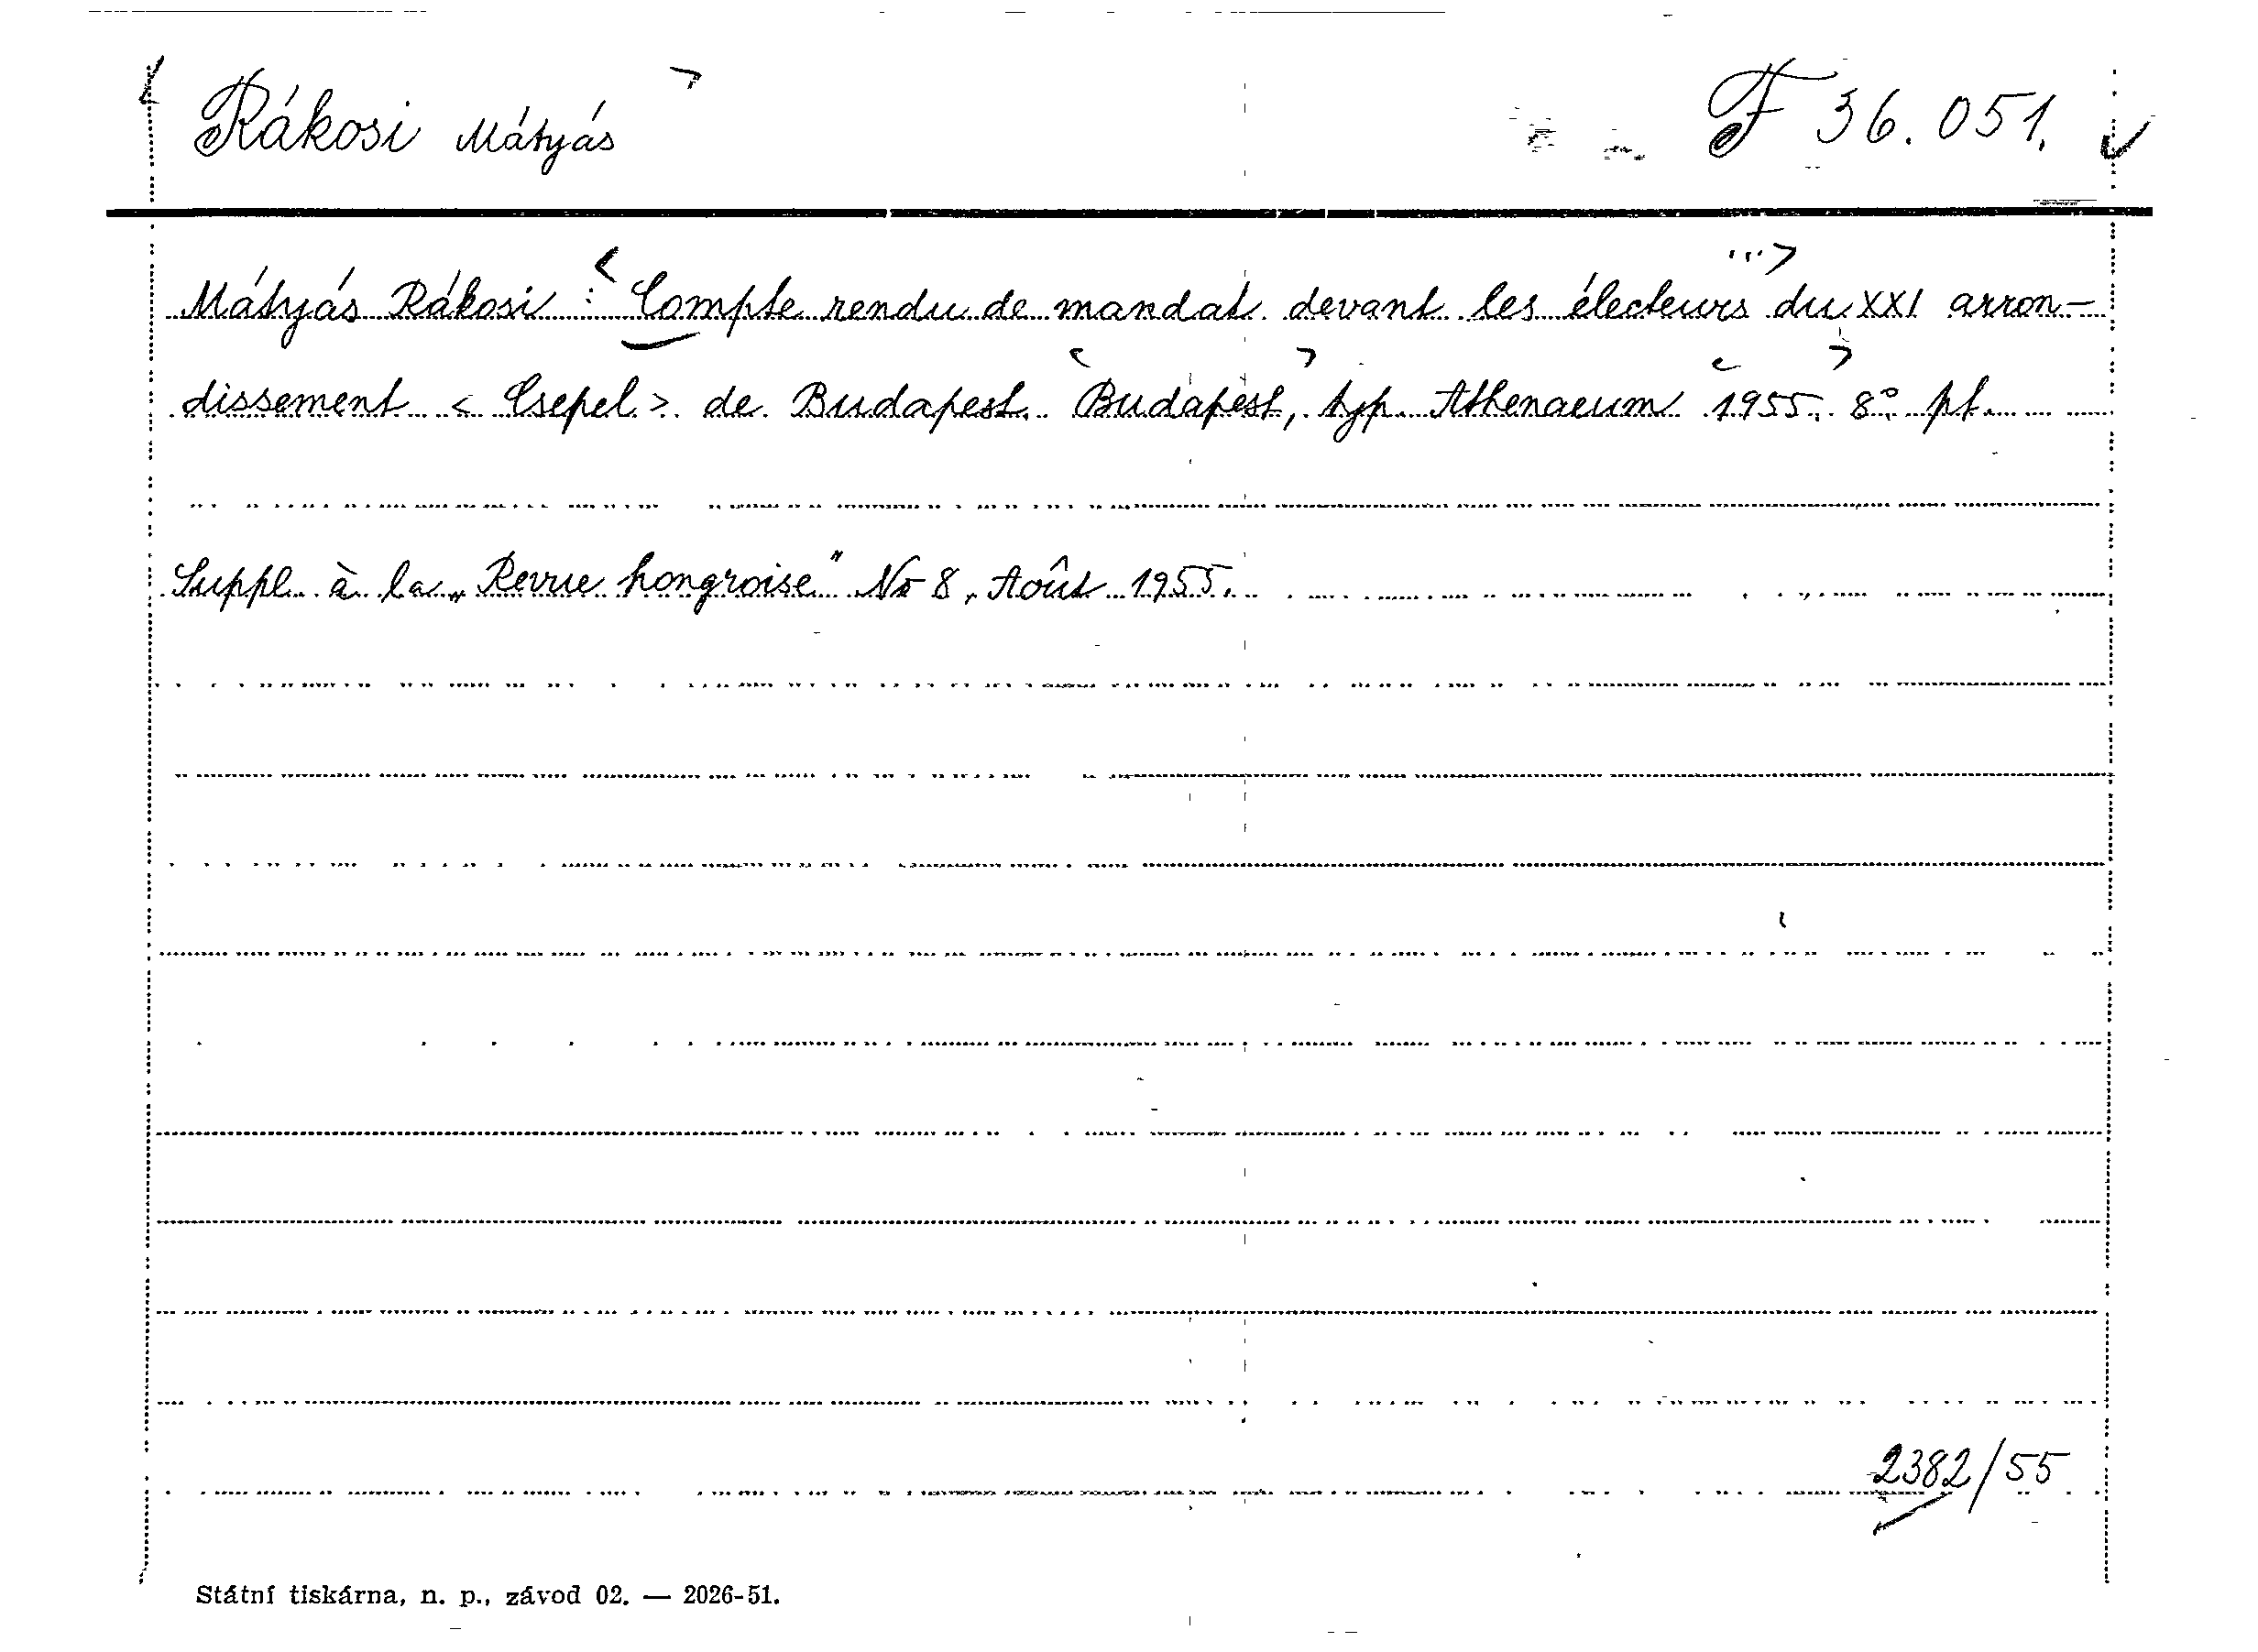 Rákosi Mátyás F 36.051.
Mátyás Rákosi : Compte rendu de mandat devant les électeurs du XXI arron-
dissement < Csepel > de Budapest. Budapest, typ. Athenaeum 1955. 8° pf.
Suppl. à la „Revue hongroise" No 8, Août 1955.
2382/55
Státní tiskárna, n. p., závod 02. — 2026-51.